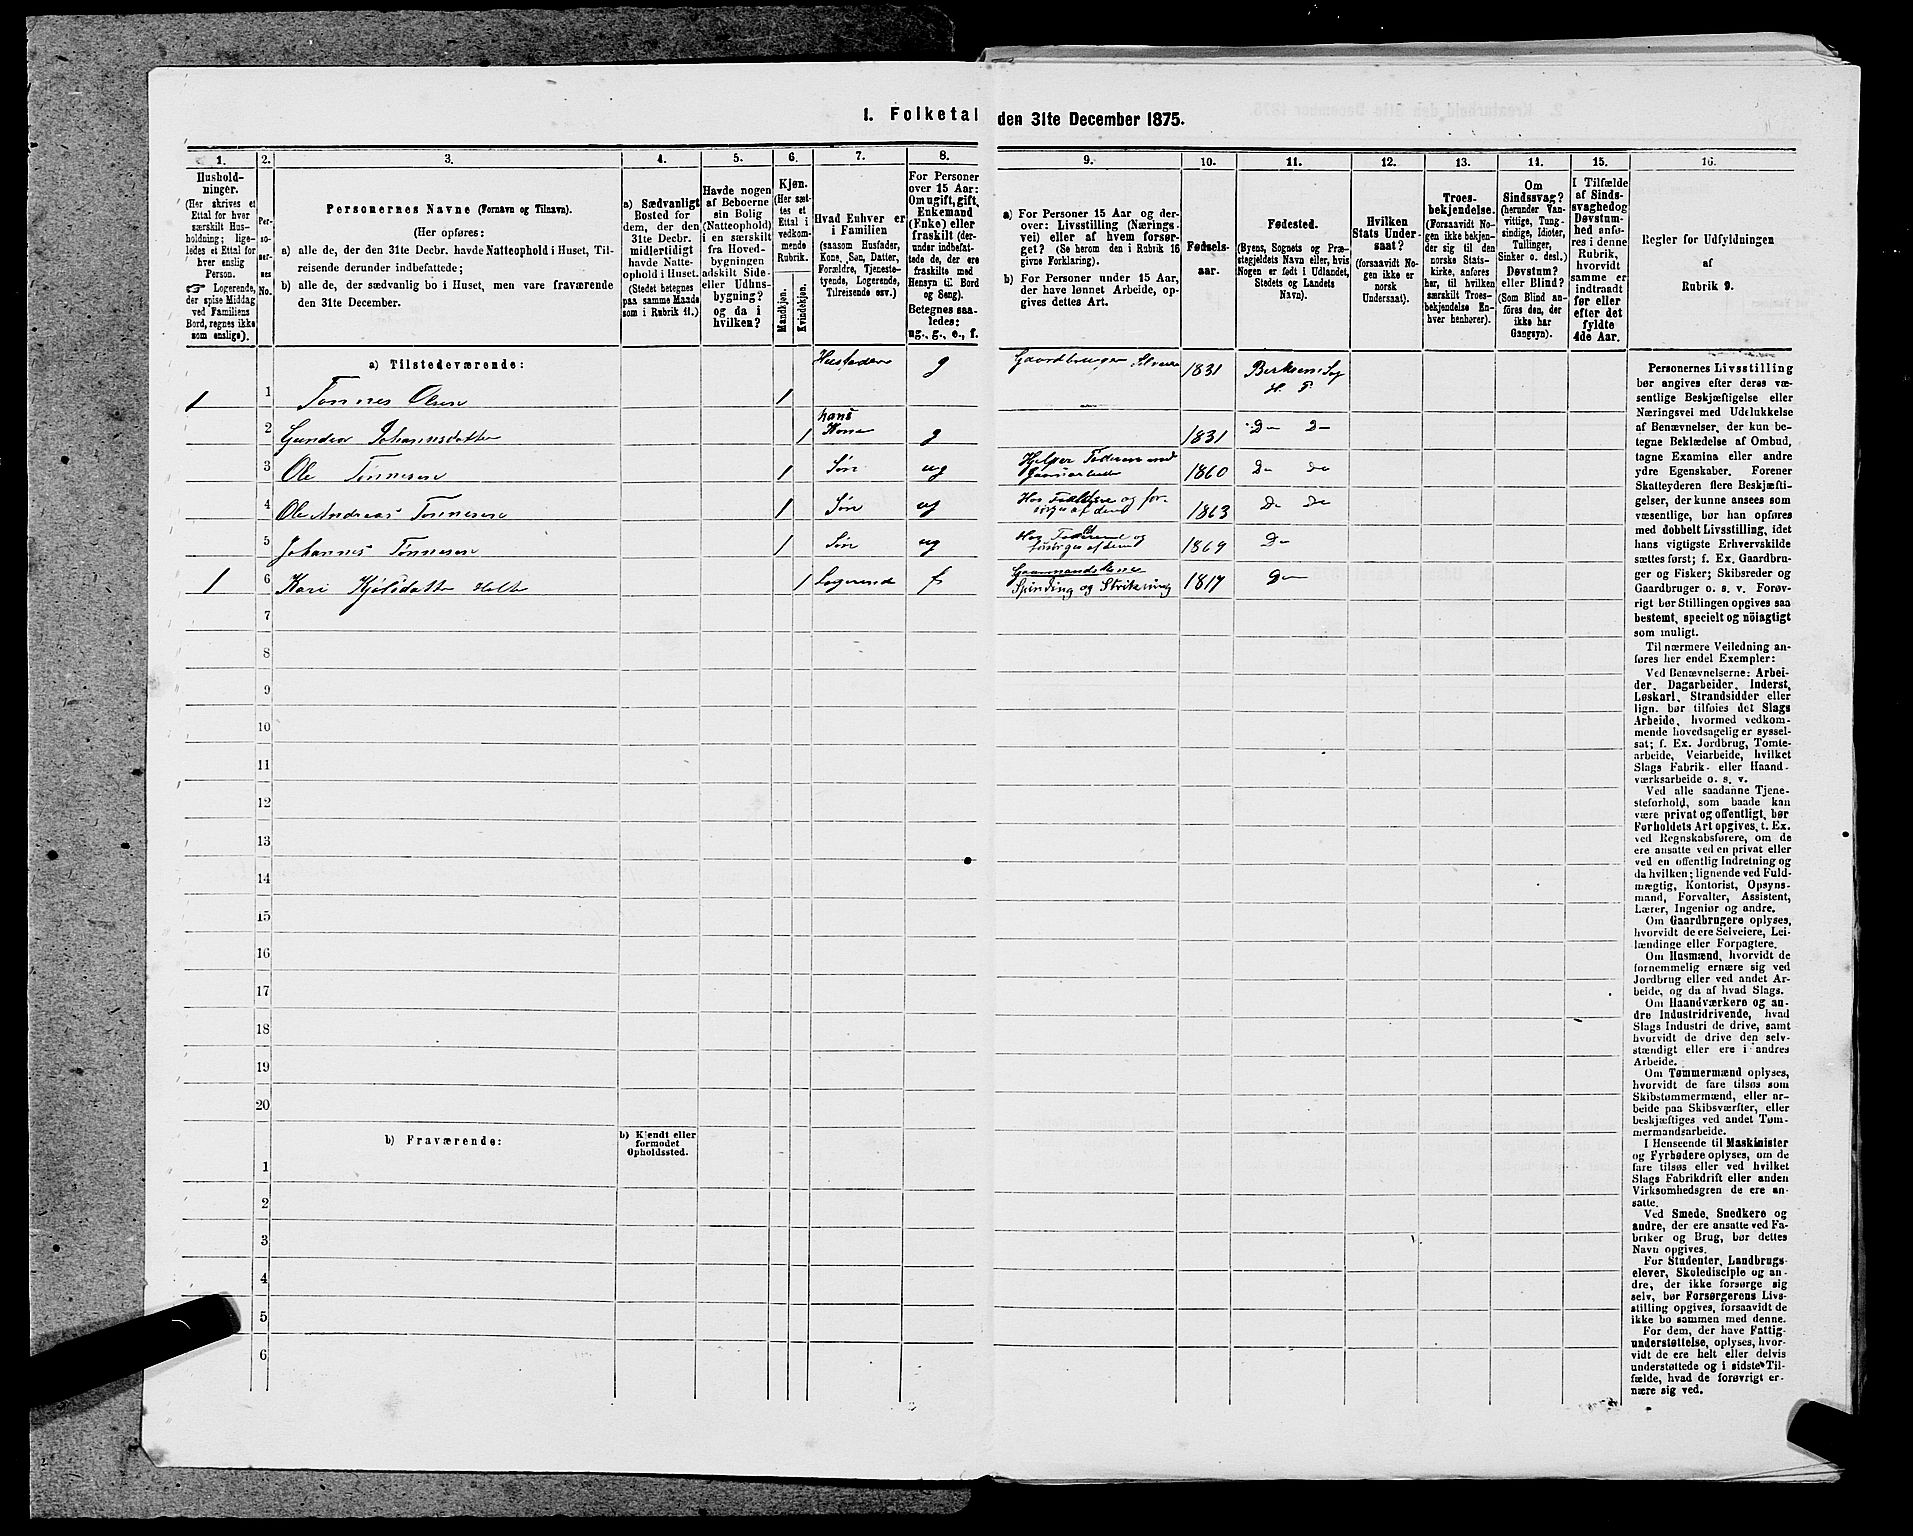 1. Folketal den 31te December 1875.
1.
Hushold-
ninger.
(Her skrives et
Ettal for hver
særskilt Hus-
holdning; lige-
ledes et Ettal for
hver enslig
Person.
☞ Logerende,
der spise Middag
ved Familiens
Bord, regnes ikke
som enslige).
2.
Per-
so-
ner-
nes
No.
3.
Personernes Navne (Fornavn og Tilnavn).
(Her opføres:
a) alle de, der den 31te Decbr. havde Natteophold i Huset, Til-
reisende derunder indbefattede;
b) alle de, der sædvanlig bo i Huset, men vare fraværende
den 31te December.
4.
a) Sædvanligt
Bosted for
dem, der den
31te Decbr.
midlertidigt
havde Natte-
ophold i Huset.
(Stedet betegnes
paa samme Maade
som i Rubrik 11.)
5.
Havde nogen
af Beboerne
sin Bolig
(Natteophold)
i en særskilt
fra Hoved-
bygningen
adskilt Side-
eller Udhus-
bygning?
og da i
hvilken?
6.
Kjøn.
(Her sæt-
tes et
Ettal i
vedkom-
mende
Rubrik.
Mandkjøn.
Kvindekjøn.
7.
Hvad Enhver er
i Familien
(saasom Husfader,
Kone, Søn, Datter,
Forældre, Tjeneste-
tyende, Logerende,
Tilreisende osv.)
8.
For Personer
over 15 Aar:
Om ugift, gift,
Enkemand
(Enke) eller
fraskilt (der-
under indbefat-
tede de, der ere
fraskilte med
Hensyn til Bord
og Seng).
Betegnes saa-
ledes:
ug., g., e., f.
9.
a) For Personer 15 Aar og der-
over: Livsstilling (Nærings-
vei) eller af hvem forsør-
get? (Se herom den i Rubrik 16
givne Forklaring).
b) For Personer under 15 Aar,
der have lønnet Arbeide, op-
gives dettes Art.
10.
Fødsels-
aar.
11.
Fødested.
(Byens, Sognets og Præ-
stegjeldets Navn eller, hvis
Nogen er født i Udlandet,
Stedets og Landets
Navn).
12.
Hvilken
Stats Under-
saat?
(forsaavidt No-
gen ikke er
norsk
Undersaat).
13.
Troes-
bekjendelse.
(Forsaavidt No-
gen ikke bekjen-
der sig til den
norske Stats-
kirke, anføres
her, til hvilken
særskilt Troes-
bekjendelse En-
hver henhører).
14.
Om
Sindssvag?
(herunder Van-
vittige, Tung-
sindige, Idioter,
Tullinger,
Sinker o. desl.)
Døvstum?
eller Blind?
(Som Blind an-
føres den, der
ikke har
Gangsyn).
15.
I Tilfælde
af Sinds-
svaghed og
Døvstum-
hed anfø-
res i denne
Rubrik,
hvorvidt
samme er
indtraadt
før eller
efter det
fyldte
4de Aar.
16.
Regler for Udfyldningen
af
Rubrik 9.
a) Tilstedeværende:
1 1 Tønnes Olsen 1 Husfader g Gaardbruger Selveier 1831 Birkenes Sog H. P.
2 Gundvor Johannesdatter 1 hans Kone g 1831 Do Do
3 Ole Tønnesen 1 Søn ug Hjelper Faderen med Gaardsarbeide 1860 Do Do
4 Ole Andreas Tønnesen 1 Søn ug Hos Forældrene og for- sørges af dem 1863 Do Do
5 Johannes Tønnesen 1 Søn ug Hos Forældrene og forsørges af dem 1869 Do
1 6 Kari Kjølsdatter 1 Logerende f Gaardmandskone Spinding og Strikning 1817 Do
7
8
9
10
11
12
13
14
15
16
17
18
19
20
b) Fraværende:
b) Kjendt eller
formodet
Opholdssted.
1
2
3
4
5
6
Personernes Livsstilling
bør angives efter deres væ-
sentlige Beskjæftigelse eller
Næringsvei med Udelukkelse
af Benævnelser, der kun be-
tegne Beklædelse af Ombud,
tagne Examina eller andre
ydre Egenskaber. Forener
Skatteyderen flere Beskjæfti-
gelser, der kunne ansees som
væsentlige, bør han opføres
med dobbelt Livsstilling, idet
hans vigtigste Erhvervskilde
sættes først; f. Ex. Gaardbru-
ger og Fisker; Skibsreder og
Gaardbruger o. s. v. Forøv-
rigt bør Stillingen opgives saa
bestemt, specielt og nöiagtigt
som muligt.
Til nærmere Veiledning an-
føres her endel Exempler:
Ved Benævnelserne: Arbei-
der, Dagarbeider, Inderst,
Løskarl, Strandsidder eller
lign. bør tilføies det Slags
Arbeide, hvormed vedkom-
mende hovedsagelig er syssel-
sat; f. Ex. Jordbrug, Tomte-
arbeide, Veiarbeide, hvilket
Slags Fabrik- eller Haand-
værksarbeide o. s. v.
Ved alle saadanne Tjene-
steforhold, som baade kan
være privat og offentligt, bør
Forholdets Art opgives, t. Ex.
ved Regnskabsførere, om de
ere ansatte ved en privat eller
ved en offentlig Indretning og
da hvilken; lignende ved Fuld-
mægtig, Kontorist, Opsyns-
mand, Forvalter, Assistent,
Lærer, Ingeniør og andre.
Om Gaardbrugere oplyses,
hvorvidt de ere Selveiere, Lei-
lændinge eller Forpagtere.
Om Husmænd, hvorvidt de
fornemmelig ernære sig ved
Jordbrug eller ved andet Ar-
beide, og da af hvad Slags.
Om Haandværkere og an-
dre Industridrivende, hvad
Slags Industri de drive, samt
hvorvidt de drive den selv-
stændigt eller ere i andres
Arbeide.
Om Tømmermænd oplyses,
hvorvidt de fare tilsøs som
Skibstømmermænd, eller ar-
beide paa Skibsværfter, eller
beskjæftiges ved andet Tøm-
mermandsarbeide.
I Henseende til Maskinister
og Fyrbødere oplyses, om de
fare tilsøs eller ved hvilket
Slags Fabrikdrift eller anden
Virksomhedsgren de ere an-
satte.
Ved Smede, Snedkere og
andre, der ere ansatte ved Fa-
briker og Brug, bør dettes
Navn opgives.
For Studenter, Landbrugs-
elever, Skoledisciple og an-
dre, der ikke forsørge sig
selv, bør Forsørgerens Livs-
stilling opgives, forsaavidt de
ikke bo sammen med denne.
For dem, der have Fattig-
understøttelse, oplyses, hvor-
vidt de ere helt eller delvis
understøttede og i sidste Til-
fælde, hvad de forøvrigt er-
nære sig ved.